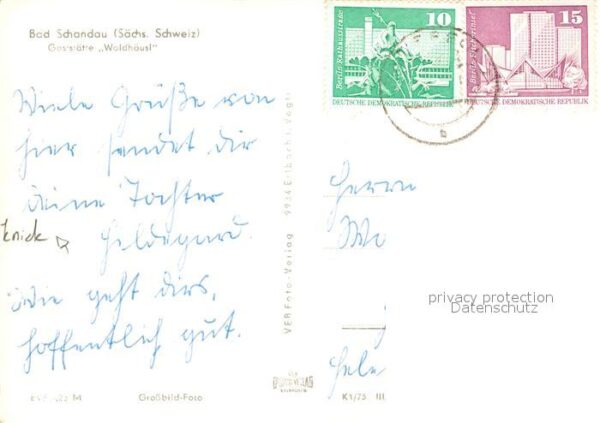 Bad Schandau (Sächs. Schweiz)
Gaststätte „Waldhäusl"
Viele Grüße von
hier sendet dir
deine Tochter
Hildegard.
knick
Wie geht dirs,
hoffentlich gut.
Großbild-Foto
VEB Foto-Verlag 9934 Erlbach i. Vogtl.
K1/75 III
10
Berlin Rathausstraße
DEUTSCHE DEMOKRATISCHE REPUBLIK
15
Berlin Fischerinsel
DEUTSCHE DEMOKRATISCHE REPUBLIK
Herrn
privacy protection
Datenschutz